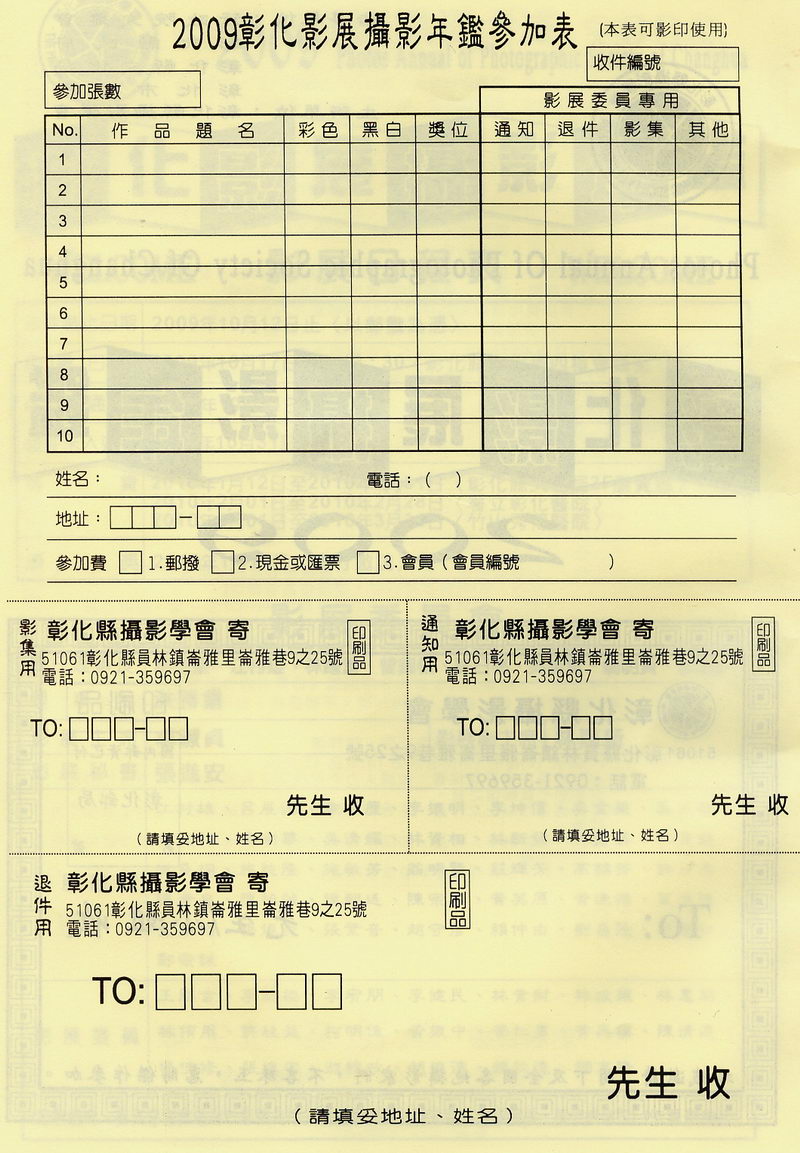 2009彰化影展攝影年鑑參加表 (本表可影印使用)
收件編號
參加張數
影展委員專用
No. 作品題名 彩色 黑白 獎位 通知 退件 影集 其他
1
2
3
4
5
6
7
8
9
10
姓名： 電話：（ ）
地址：□□□－□□
參加費 □1.郵撥 □2.現金或匯票 □3.會員（會員編號 ）
影集用
彰化縣攝影學會 寄
印刷品
51061彰化縣員林鎮崙雅里崙雅巷9之25號
電話：0921-359697
TO:□□□-□□
先生 收
（請填妥地址、姓名）
通知用
彰化縣攝影學會 寄
印刷品
51061彰化縣員林鎮崙雅里崙雅巷9之25號
電話：0921-359697
TO:□□□-□□
先生 收
（請填妥地址、姓名）
退件用
彰化縣攝影學會 寄
印刷品
51061彰化縣員林鎮崙雅里崙雅巷9之25號
電話：0921-359697
TO:□□□-□□
先生 收
（請填妥地址、姓名）